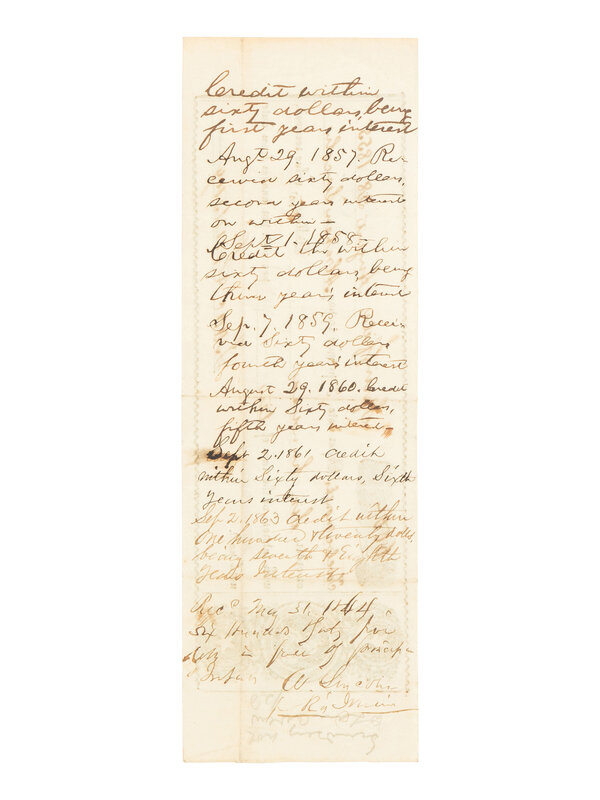 Credit within
sixty dollars, being
first years interest
Augt. 29. 1857. Re-
ceived sixty dollars,
second years interest
on within—
Sept. 1. 1858
Credit the within
sixty dollars, being
third year's interest
Sep. 7. 1859. Recei-
ved Sixty dollars
fourth year's interest
August 29. 1860. Credit
within Sixty dollars,
fifth years interest—
Sept 2. 1861. Credit
within Sixty dollars, Sixth
Years interest
Sep 2. 1863 Credit within
One hundred & twenty dolls,
being seventh & Eighth
Years Interest.
Recd. May 31. 1864,
Six Hundred & forty five
dolls in full of principal
& Interest
A. Lincoln
Irwin